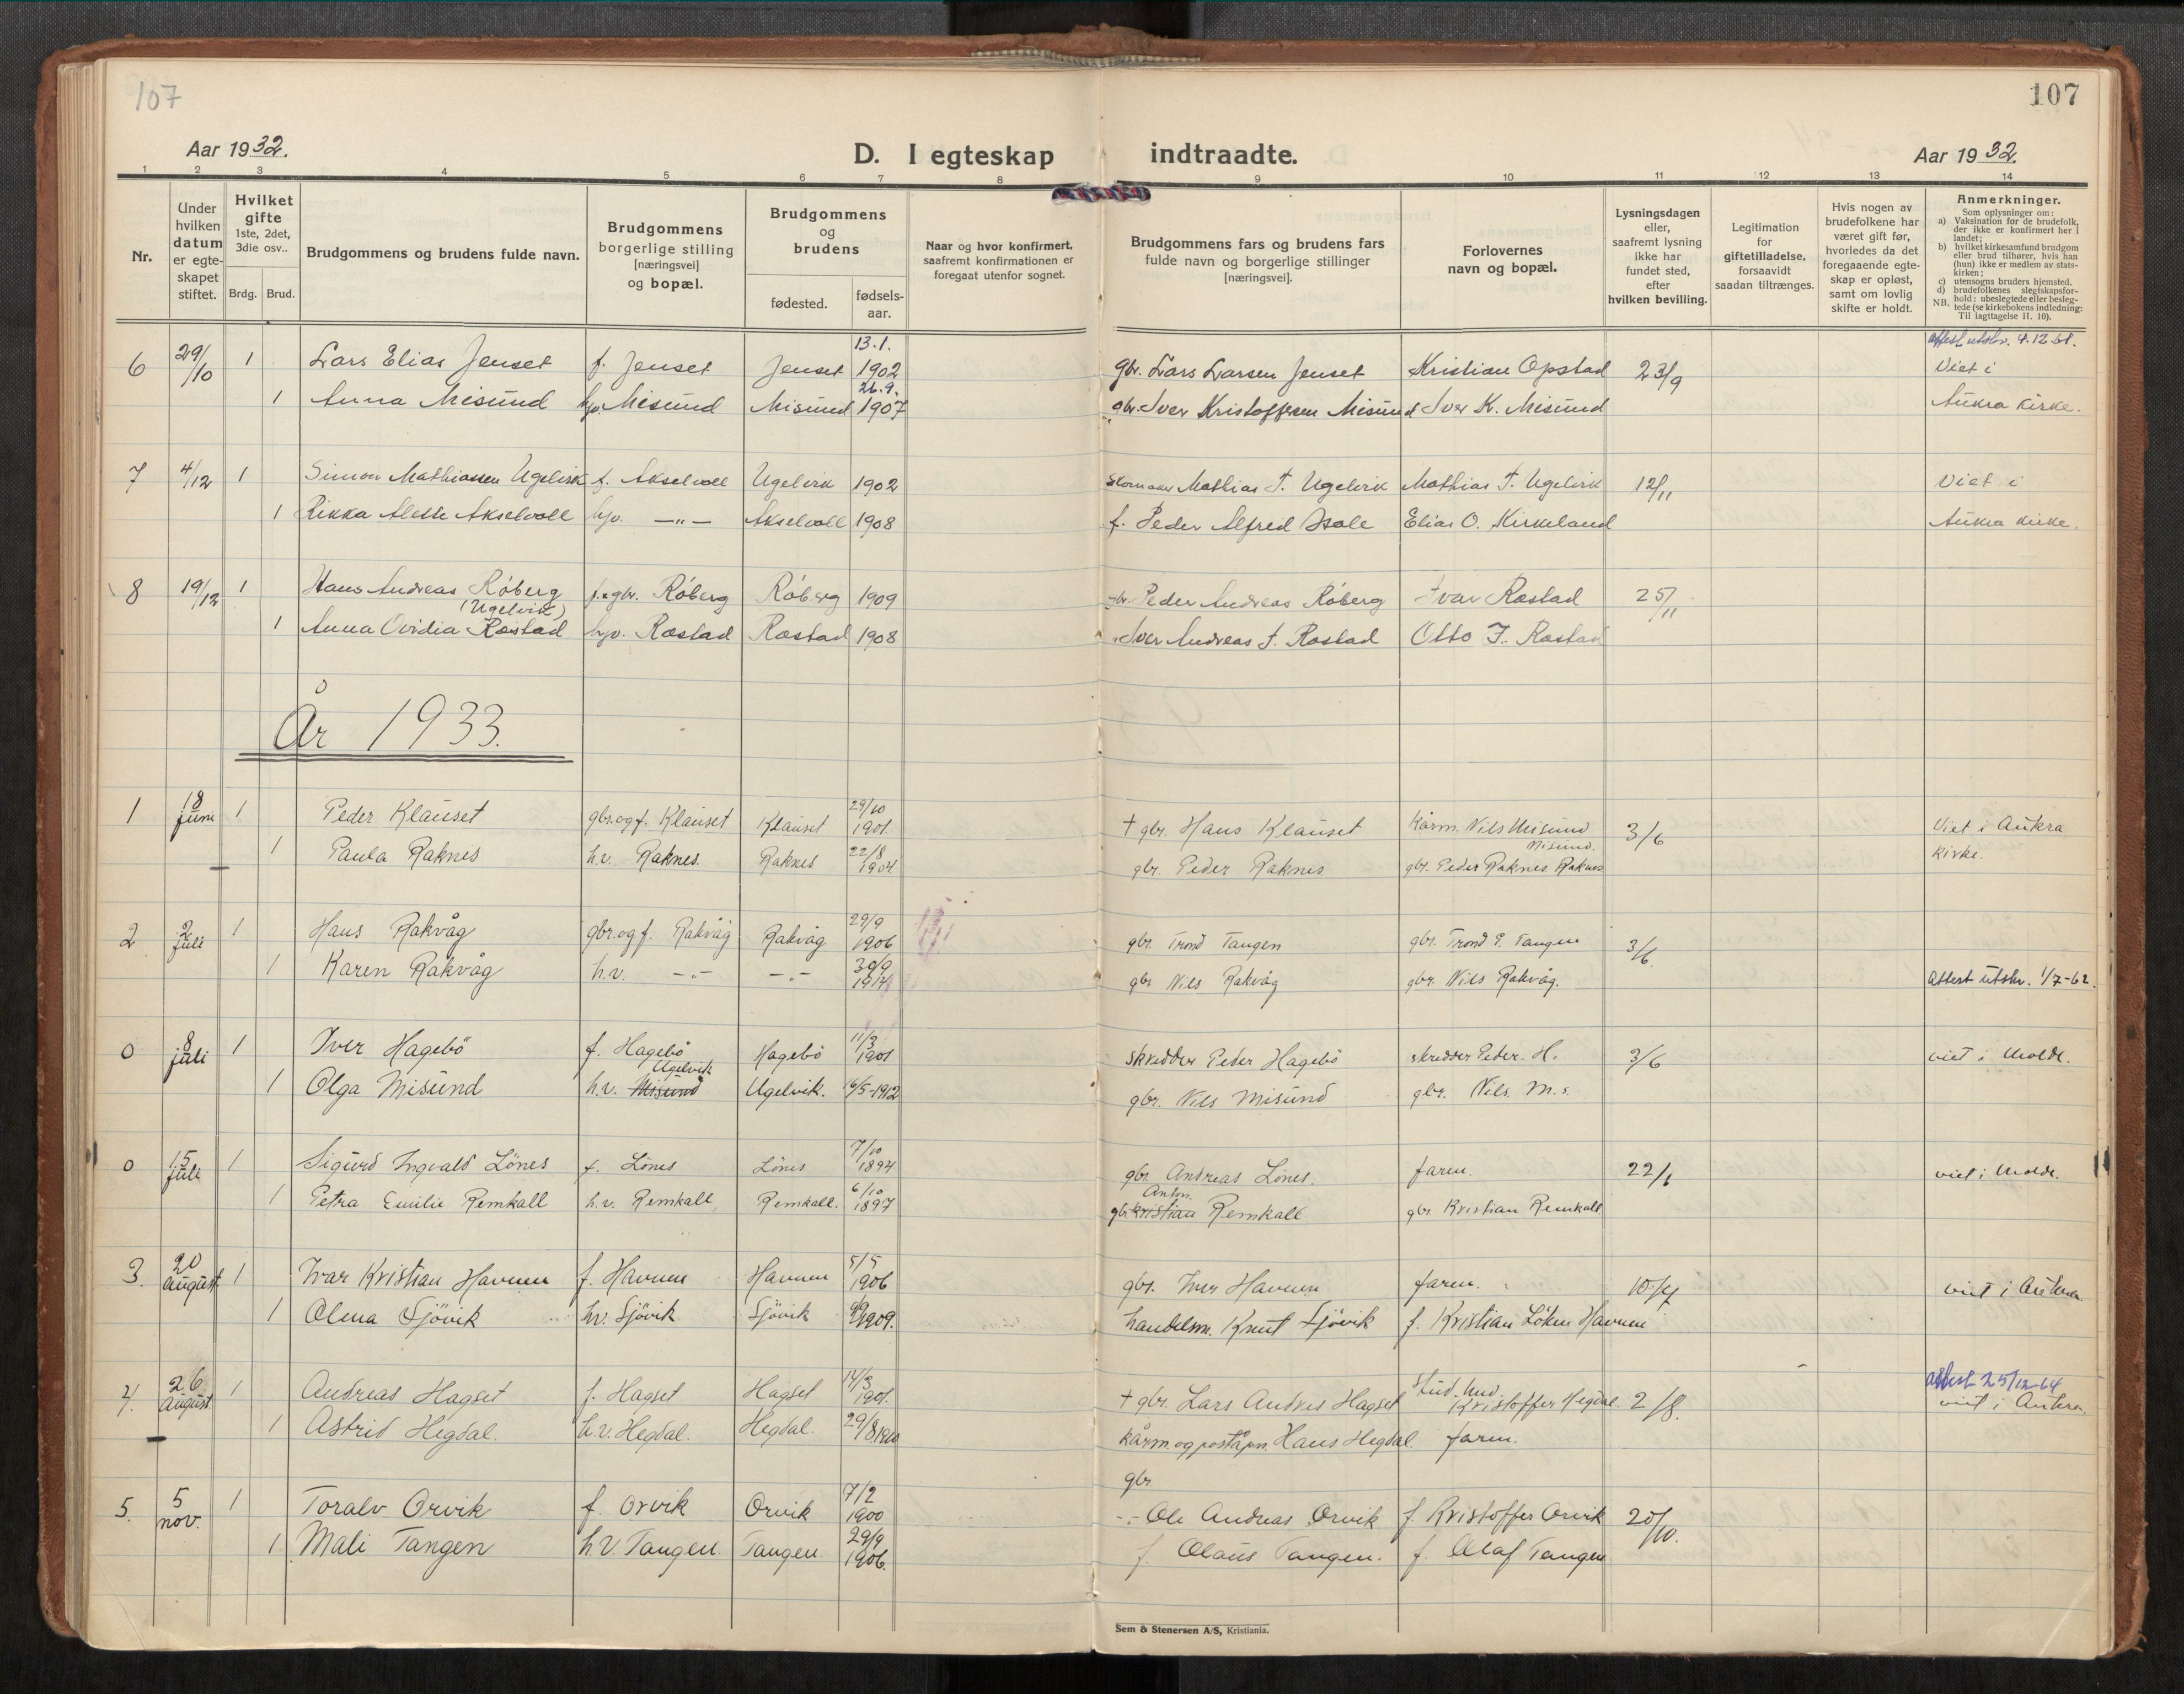 107
107
Aar 1932.
D. I egteskap indtraadte.
Aar 1932.
1 2 3 4 5 6 7 8 9 10 11 12 13 14
Nr.
Under hvilken datum er egte-skapet stiftet.
Hvilket gifte 1ste, 2det, 3die osv..
Brdg. Brud.
Brudgommens og brudens fulde navn.
Brudgommens borgerlige stilling [næringsvei] og bopæl.
Brudgommens og brudens
fødested. fødsels-aar.
Naar og hvor konfirmert, saafremt konfirmationen er foregaat utenfor sognet.
Brudgommens fars og brudens fars fulde navn og borgerlige stillinger [næringsvei].
Forlovernes navn og bopæl.
Lysningsdagen eller, saafremt lysning ikke har fundet sted, efter hvilken bevilling.
Legitimation for giftetilladelse, forsaavidt saadan tiltrænges.
Hvis nogen av brudefolkene har været gift før, hvorledes da det foregaaende egte-skap er opløst, samt om lovlig skifte er holdt.
Anmerkninger.
Som oplysninger om:
a) Vaksination for de brudefolk, der ikke er konfirmert her i landet;
b) hvilket kirkesamfund brudgom eller brud tilhører, hvis han (hun) ikke er medlem av stats-kirken;
c) utensogns bruders hjemsted.
d) brudefolkenes slegtskapsfor-hold: ubeslegtede eller besleg-tede (se kirkebokens indledning: Til iagttagelse II. 10).
NB.
13.1. attest utskr. 4.12.61.
6 29/10 1 Lars Elias Jenset f. Jenset Jenset 1902 gbr. Lars Larsen Jenset Kristian Opstad 23/9 Viet i
26.9.
1 Anna Misund hv. Misund Misund 1907 gbr. Iver Kristoffersen Misund Iver K. Misund Aukra kirke.
7 4/12 1 Simon Mathiassen Ugelvik f. Akselvoll Ugelvik 1902 Mathias T. Ugelvik Mathias T. Ugelvik 12/11 Viet i
1 Rikka Alette Akselvoll hv. —"— Akselvoll 1908 f. Peder Alfred Elias O. Kirkeland Aukra kirke.
8 19/12 1 Hans Andreas Róberg f. & gbr. Róberg Róberg 1909 gbr. Peder Andreas Róberg Ivar Rostad 25/11
(Ugelvik)
1 Anna Ovidia Rostad hv. Rostad Rostad 1908 Iver Andreas I. Rostad Otto I. Rostad
År 1933.
1 18 juni 1 Peder Klauset gbr. og f. Klauset Klauset 29/10 1901 † gbr. Hans Klauset Kårm. Nils Misund Misund. 3/6 Viet i Aukra
1 Paula Raknes h.v. Raknes. Raknes 22/8 1904 gbr. Peder Raknes gbr. Peder Raknes Raknes kirke.
2 2 juli 1 Hans Rakvåg gbr. og f. Rakvåg Rakvåg 29/9 1906 gbr. Trond Tangen gbr. Trond P. Tangen 3/6
1 Karen Rakvåg h.v. —"— —"— 30/9 1914 gbr Nils Rakvåg gbr. Nils Rakvåg. attest utskr. 1/7-62.
0 8 juli 1 Iver Hagebö f. Hagebö Hagebö 11/3 1901 skredder Peder Hagebö skredder Peder. H. 3/6 viet i Molde.
Ugelvik
1 Olga Misund h.v. Misund Ugelvik. 16/5-1912 gbr. Nils Misund gbr. Nils M.s.
0 15 juli 1 Sigurd Ingvald Lönes f. Lönes Lönes 7/10 1894 gbr. Andreas Lönes. faren. 22/6 viet i Molde.
Anton.
1 Petra Emilie Remkall h.v. Remkall Remkall. 6/10 1897 gbr. Kristian Remkall gbr Kristian Remkall
3. 20 august 1 Ivar Kristian Havnen f. Havnen Havnen 5/5 1906 gbr. Iver Havnen faren. 10/7 viet i Aukra
1 Olena Sjövik hv. Sjövik Sjövik 1909. handelsm. Knut Sjövik f. Kristian Löken Havnen
attest 25/12-64
4. 26 august 1 Andreas Hagset f. Hagset Hagset 14/3 1901. † gbr. Lars Andres Hagset stud. Kristoffer Hegdal. 2/8. viet i Aukra.
1 Astrid Hegdal. h.v. Hegdal. Hegdal. 29/8 1910 kårm. og poståpn. Hans Hegdal. faren.
gbr
5. 5 nov. 1 Toralv Orvik f. Orvik Orvik 7/2 1900 -"- Ole Andreas Orvik f. Kristoffer Orvik 20/10.
1 Mali Tangen h.v. Tangen. Tangen. 29/9 1906. f. Olaus Tangen. f. Olaf Tangen
Sem & Stenersen A/S, Kristiania.